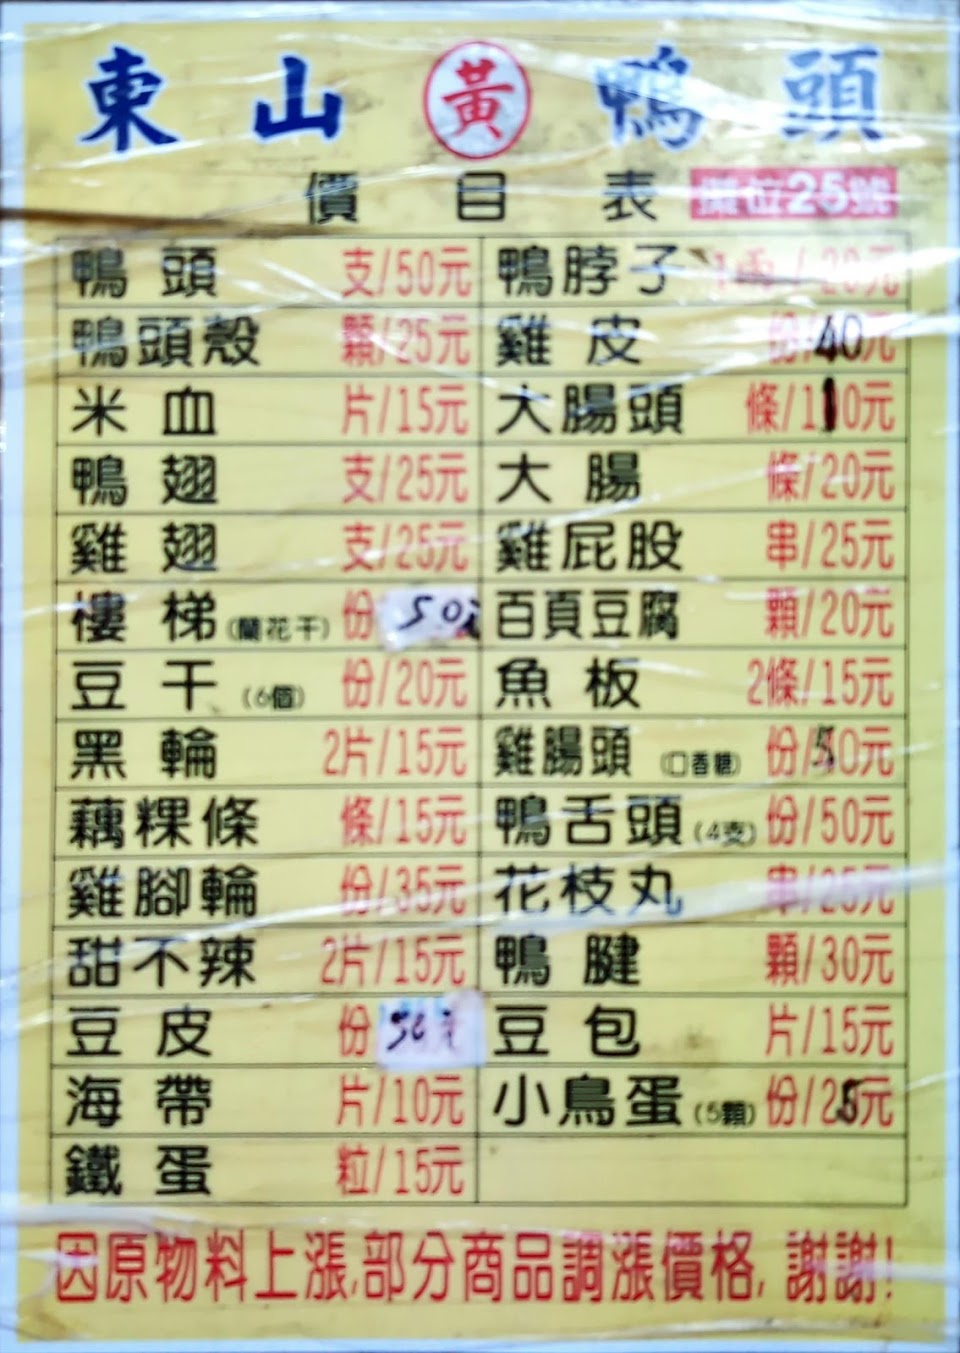 東山黃鴨頭
價目表 攤位25號
鴨頭 支/50元 鴨脖子 1兩/20元
鴨頭殼 顆/25元 雞皮 份/40元
米血 片/15元 大腸頭 條/110元
鴨翅 支/25元 大腸 條/20元
雞翅 支/25元 雞屁股 串/25元
樓梯(蘭花干) 份 50元 百頁豆腐 顆/20元
豆干(6個) 份/20元 魚板 2條/15元
黑輪 2片/15元 雞腸頭(口香糖) 份/50元
藕粿條 條/15元 鴨舌頭(4支) 份/50元
雞腳輪 份/35元 花枝丸 串/25元
甜不辣 2片/15元 鴨腱 顆/30元
豆皮 份 50元 豆包 片/15元
海帶 片/10元 小鳥蛋(5顆) 份/25元
鐵蛋 粒/15元
因原物料上漲,部分商品調漲價格, 謝謝!